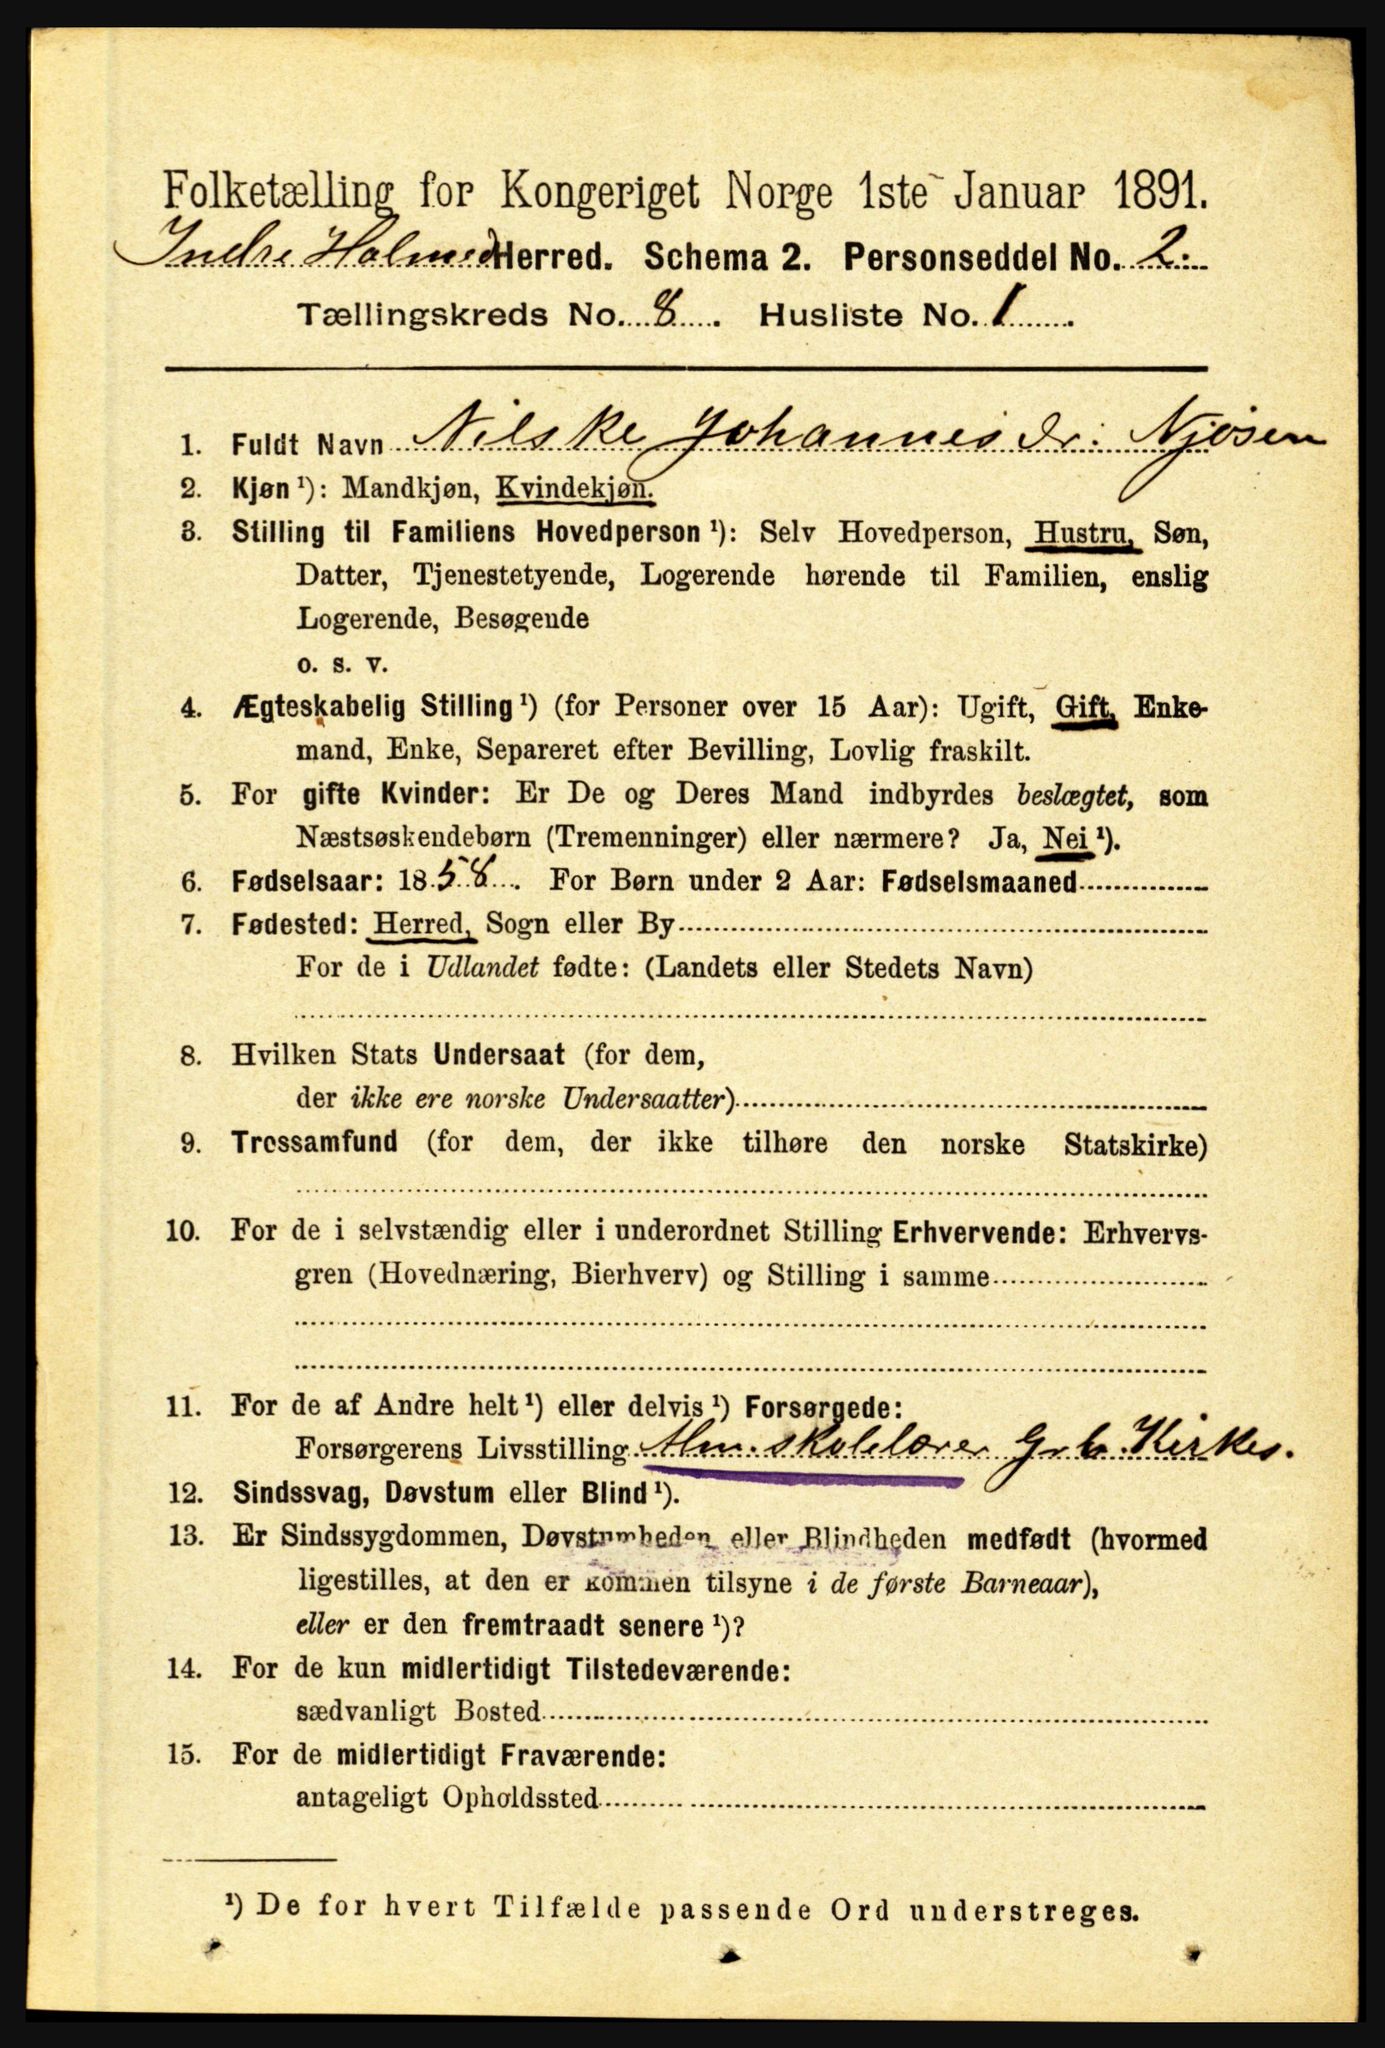 Folketælling for Kongeriget Norge 1ste Januar 1891.
Indre Holmed Herred. Schema 2. Personseddel No. 2.
Tællingskreds No. 8. Husliste No. 1.
1. Fuldt Navn Nilske Johannesdr. Njøsen
2. Kjøn ¹): Mandkjøn, Kvindekjøn.
3. Stilling til Familiens Hovedperson ¹): Selv Hovedperson, Hustru, Søn,
Datter, Tjenestetyende, Logerende hørende til Familien, enslig
Logerende, Besøgende
o. s. v.
4. Ægteskabelig Stilling ¹) (for Personer over 15 Aar): Ugift, Gift, Enke-
mand, Enke, Separeret efter Bevilling, Lovlig fraskilt.
5. For gifte Kvinder: Er De og Deres Mand indbyrdes beslægtet, som
Næstsøskendebørn (Tremenninger) eller nærmere? Ja, Nei ¹).
6. Fødselsaar: 1858. For Børn under 2 Aar: Fødselsmaaned
7. Fødested: Herred, Sogn eller By
For de i Udlandet fødte: (Landets eller Stedets Navn)
8. Hvilken Stats Undersaat (for dem,
der ikke ere norske Undersaatter)
9. Trossamfund (for dem, der ikke tilhøre den norske Statskirke)
10. For de i selvstændig eller i underordnet Stilling Erhvervende: Erhvervs-
gren (Hovednæring, Bierhverv) og Stilling i samme
11. For de af Andre helt ¹) eller delvis ¹) Forsørgede:
Forsørgerens Livsstilling Alm. skolelærer Grb. Kirkes.
12. Sindssvag, Døvstum eller Blind ¹).
13. Er Sindssygdommen, Døvstumheden eller Blindheden medfødt (hvormed
ligestilles, at den er kommen tilsyne i de første Barneaar),
eller er den fremtraadt senere ¹)?
14. For de kun midlertidigt Tilstedeværende:
sædvanligt Bosted
15. For de midlertidigt Fraværende:
antageligt Opholdssted
¹) De for hvert Tilfælde passende Ord understreges.